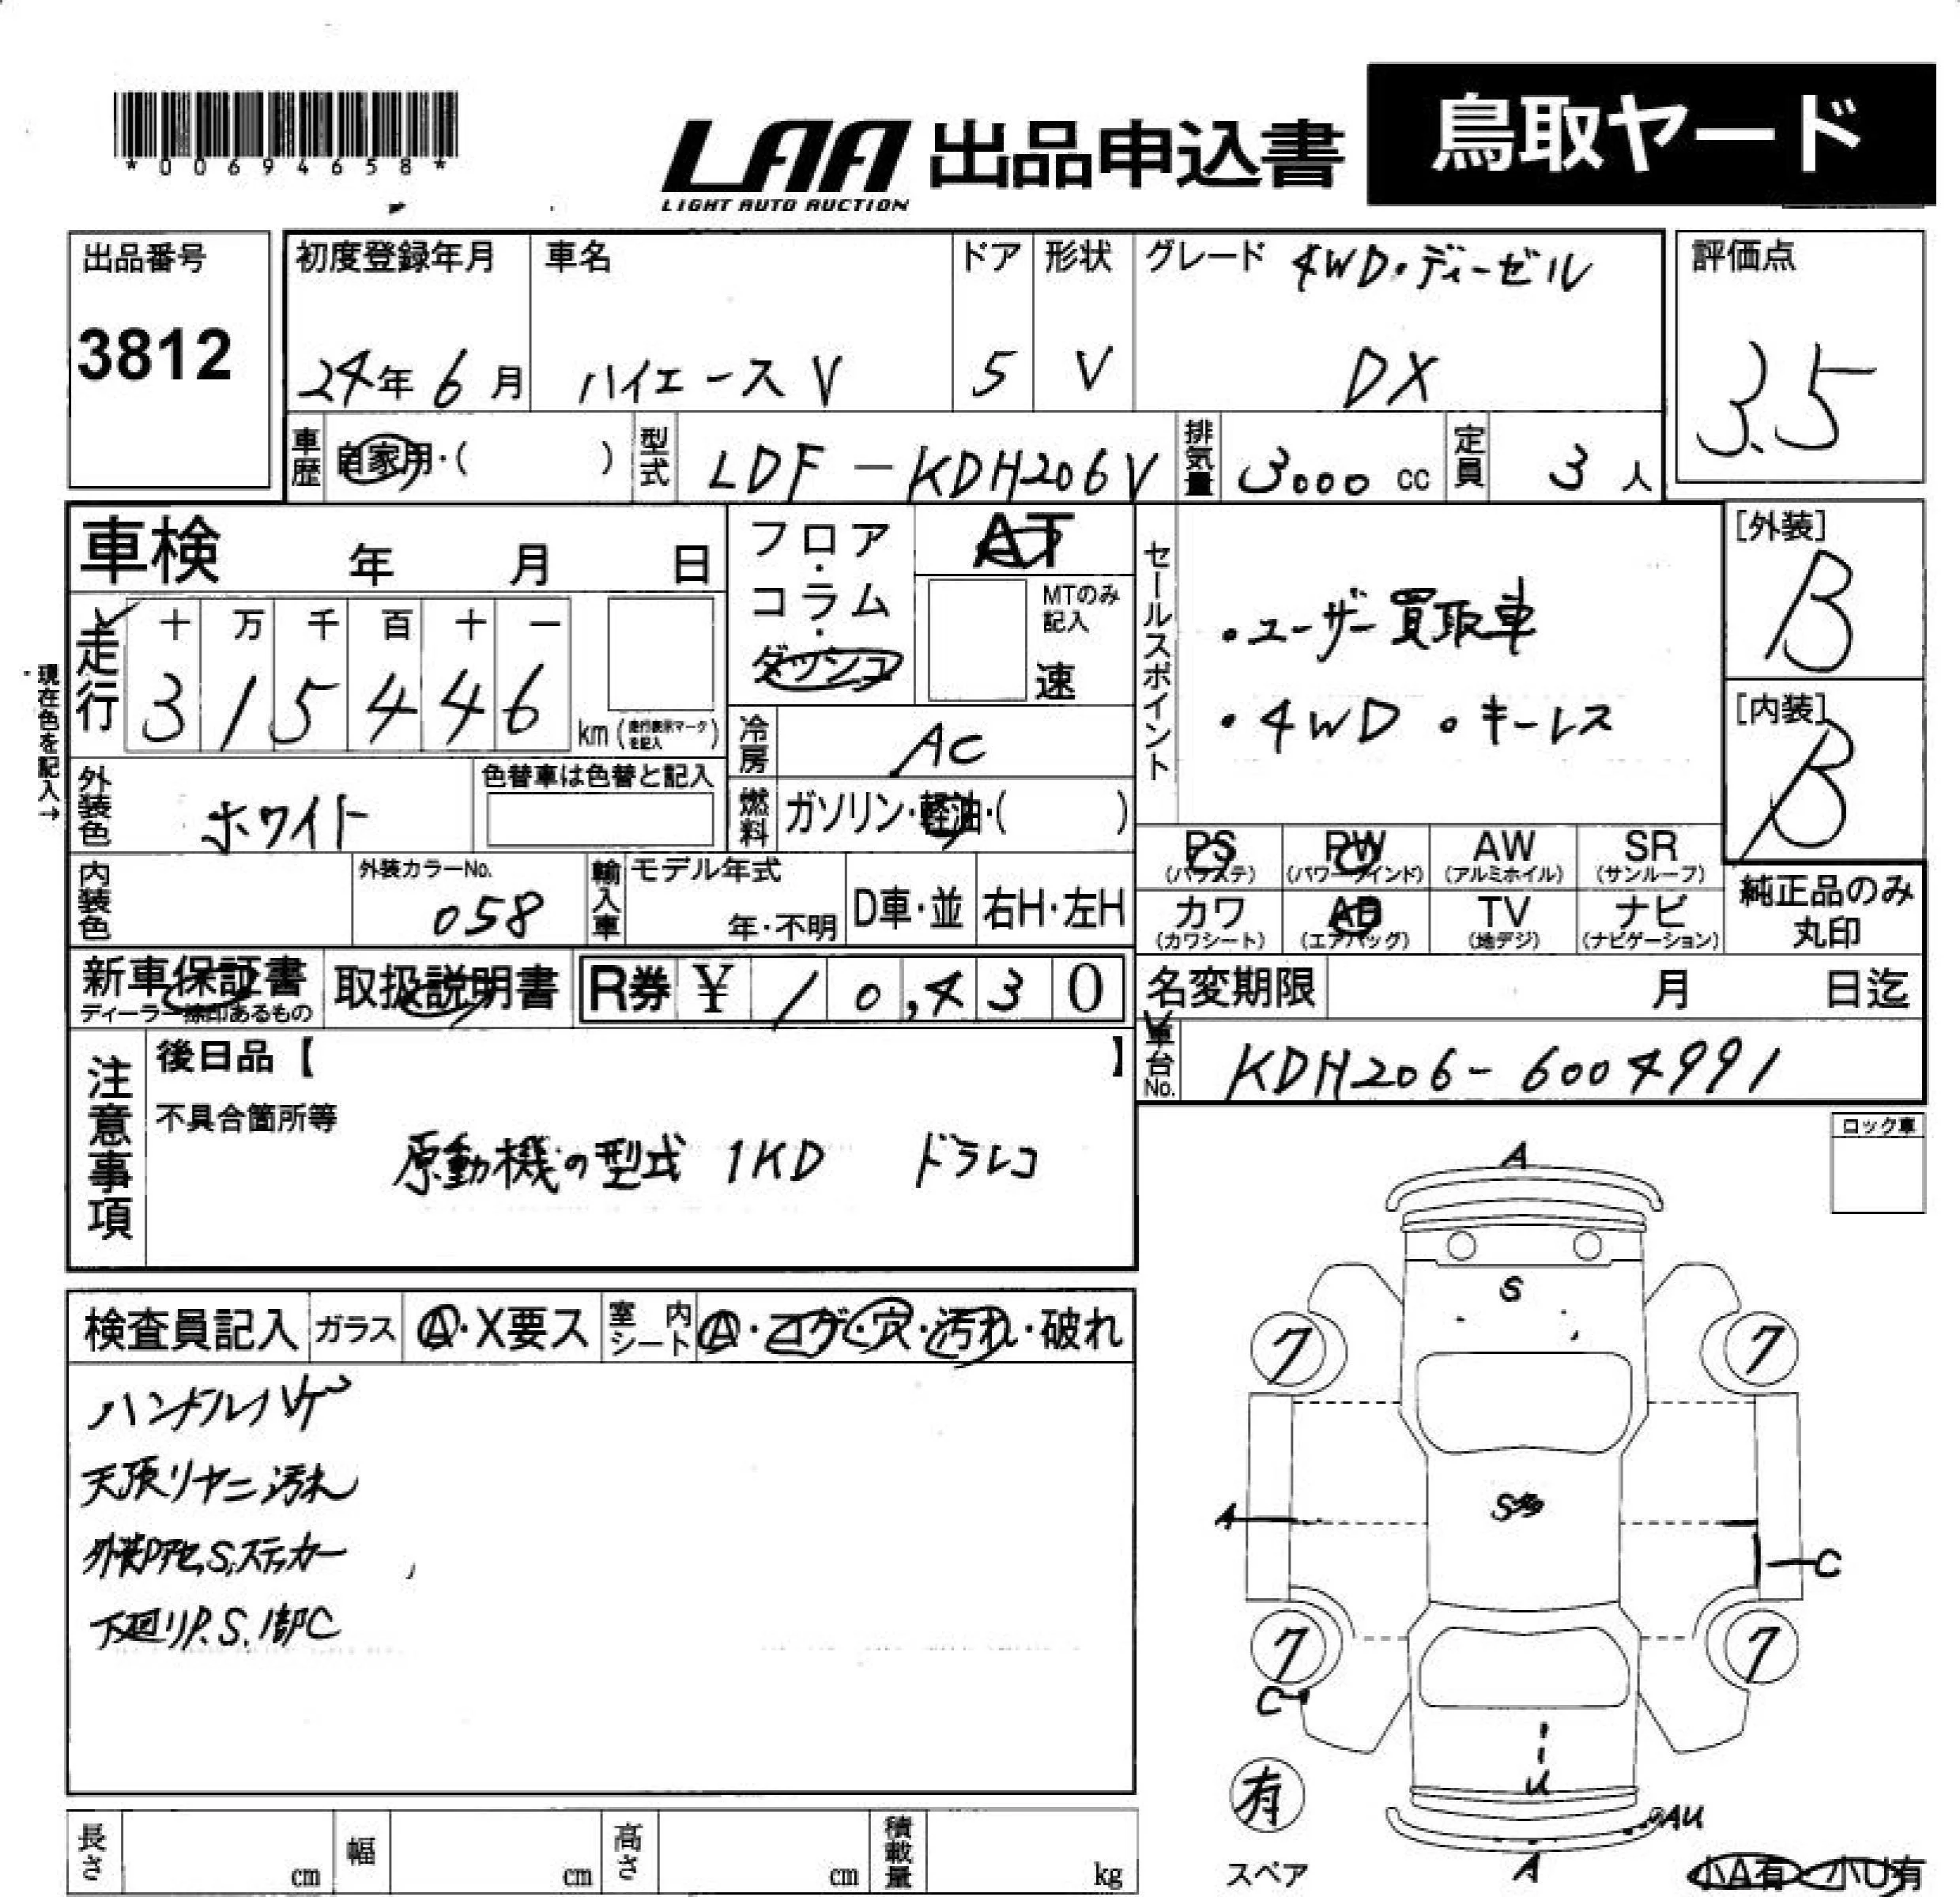 *00694658*
LAA 出品申込書 鳥取ヤード
LIGHT AUTO AUCTION
出品番号 初度登録年月 車名 ドア 形状 グレード 4WD・ディーゼル 評価点
3812 24年6月 ハイエースV 5 V DX 3.5
車歴 自家用・( ) 型式 LDF-KDH206V 排気量 3000 cc 定員 3人
車検 年 月 日
フロア・コラム・ダッシュ
AT
MTのみ記入
速
セールスポイント
・ユーザー買取車
・4WD ・キーレス
[外装]
B
[内装]
B
走行 十 万 千 百 十 一
3 1 5 4 4 6 km (走行表示マークを記入)
現在色を記入→
冷房 AC
外装色 ホワイト 色替車は色替と記入
燃料 ガソリン・軽油・( )
PS AW SR
PW
(パワステ) (パワーウインド) (アルミホイル) (サンルーフ)
カワ AB TV ナビ
(カワシート) (エアバッグ) (地デジ) (ナビゲーション)
純正品のみ
丸印
内装色 外装カラーNo. 058 輸入車 モデル年式 年・不明 D車・並 右H・左H
新車保証書 取扱説明書 R券 ¥ 10,430
ディーラー捺印あるもの
名変期限 月 日迄
車台No. KDH206-6004991
注意事項
後日品【 】
不具合箇所等
原動機の型式 1KD ドラレコ
ロック車
検査員記入 ガラス A・X要ス 室内シート A・コゲ・穴・汚れ・破れ
ハンドルハゲ
天張リヤニ汚れ
S,ステッカー
下廻りP.S.1部C
A
S
7 7
A
S多
C
7 7
C
U
AU
A
有
スペア
小A有・小U有
長さ cm 幅 cm 高さ cm 積載量 kg